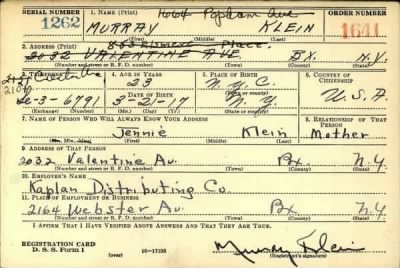 SERIAL NUMBER 1. NAME (Print) 1664 Popham Ave ORDER NUMBER
1262 MURRAY KLEIN 1641
(First) (Middle) (Last)
2. ADDRESS (Print) 803 Place.
2032 VALENTINE AVE BX. N.Y.
(Number and street or R. F. D. number) (Town) (County) (State)
3. TELEPHONE 4. AGE IN YEARS 5. PLACE OF BIRTH 6. COUNTRY OF CITIZENSHIP
23 N.Y.C.
DATE OF BIRTH (Town or county)
6791 3-21-17 N.Y. U.S.A.
(Exchange) (Number) (Mo.) (Day) (Yr.) (State or country)
7. NAME OF PERSON WHO WILL ALWAYS KNOW YOUR ADDRESS 8. RELATIONSHIP OF THAT PERSON
Jennie Klein Mother
(Mr., Mrs., Miss) (First) (Middle) (Last)
9. ADDRESS OF THAT PERSON
2032 Valentine Av. Bx. N.Y
(Number and street or R. F. D. number) (Town) (County) (State)
10. EMPLOYER'S NAME
Kaplan Distributing Co.
11. PLACE OF EMPLOYMENT OR BUSINESS
2164 Webster Av. Bx N.Y
(Number and street or R. F. D. number) (Town) (County) (State)
I AFFIRM THAT I HAVE VERIFIED ABOVE ANSWERS AND THAT THEY ARE TRUE.
REGISTRATION CARD
D. S. S. Form 1 16-17105 Murray Klein
(Registrant's signature)